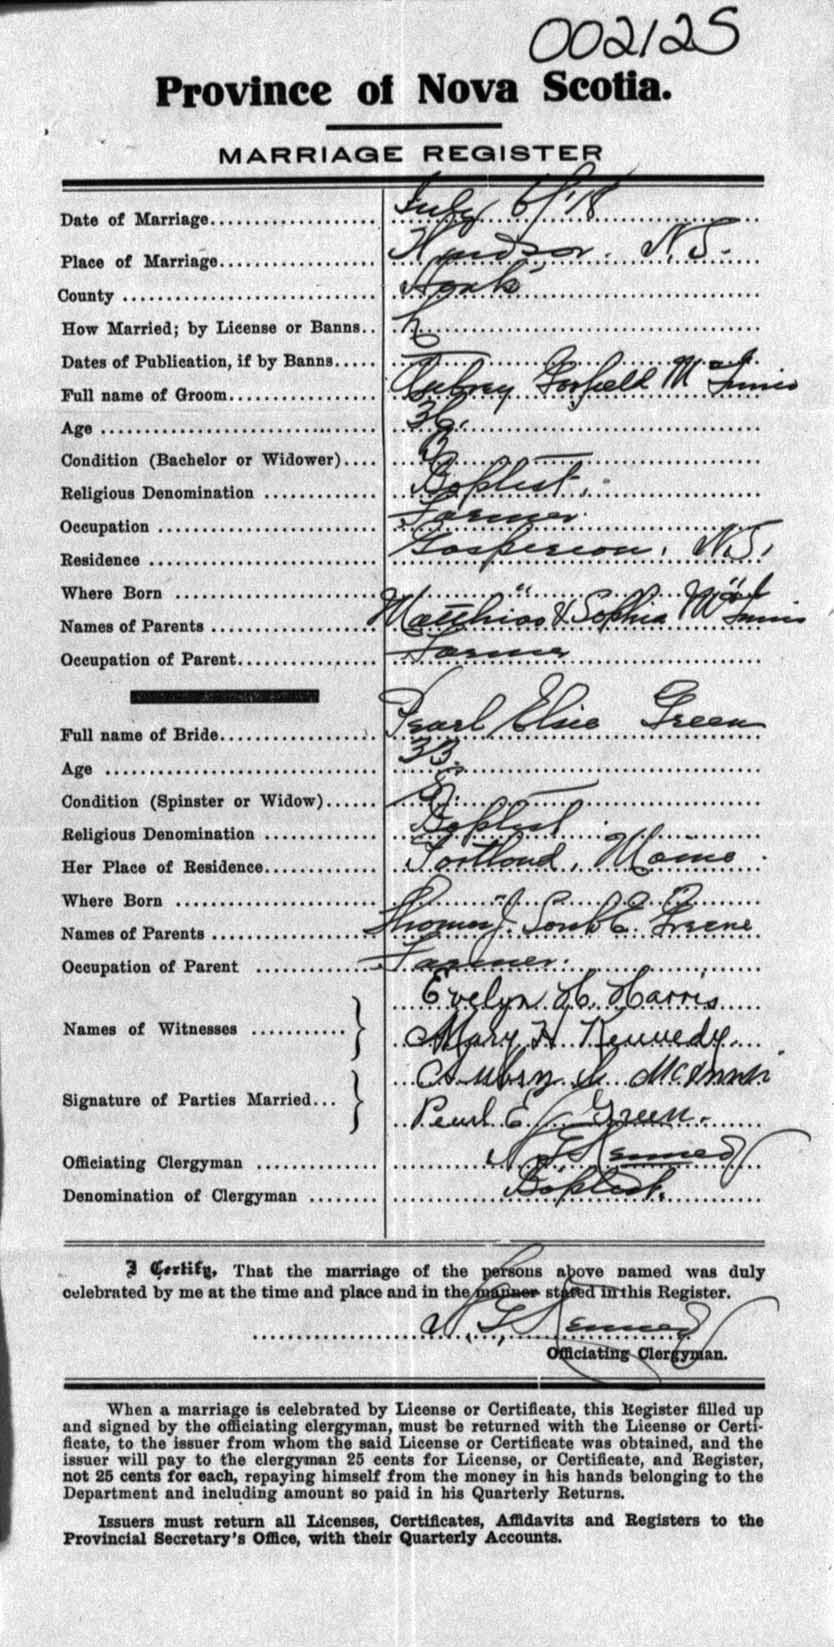 002125
Province of Nova Scotia.
MARRIAGE REGISTER
Date of Marriage.................... July 6/'18
Place of Marriage................... Windsor. N.S.
County ............................. Hants
How Married; by License or Banns.. L
Dates of Publication, if by Banns.....
Full name of Groom................. Aubrey Garfield McInnis
Age ................................ 36.
Condition (Bachelor or Widower).... B
Religious Denomination ............. Baptist.
Occupation ......................... Farmer
Residence .......................... Gaspereau, N.S.
Where Born ......................... " "
Names of Parents ................... Matthias & Sophia McInnis
Occupation of Parent................ Farmer
Full name of Bride.................. Pearl Elsie Green
Age ................................ 33.
Condition (Spinster or Widow)...... S.
Religious Denomination ............. Baptist
Her Place of Residence.............. Portland, Maine.
Where Born .........................
Names of Parents ................... Thomas J. Sarah E. Greene
Occupation of Parent ............... Farmer.
Names of Witnesses ........... } Evelyn H. Harris
Mary H Kennedy
Signature of Parties Married... } McInnis
Pearl E Green.
Officiating Clergyman .............. Kennedy
Denomination of Clergyman ........ Baptist.
I Certify, That the marriage of the persons above named was duly
celebrated by me at the time and place and in the manner stated in this Register.
Kennedy
Officiating Clergyman.
When a marriage is celebrated by License or Certificate, this Register filled up
and signed by the officiating clergyman, must be returned with the License or Certi-
ficate, to the issuer from whom the said License or Certificate was obtained, and the
issuer will pay to the clergyman 25 cents for License, or Certificate, and Register,
not 25 cents for each, repaying himself from the money in his hands belonging to the
Department and including amount so paid in his Quarterly Returns.
Issuers must return all Licenses, Certificates, Affidavits and Registers to the
Provincial Secretary's Office, with their Quarterly Accounts.